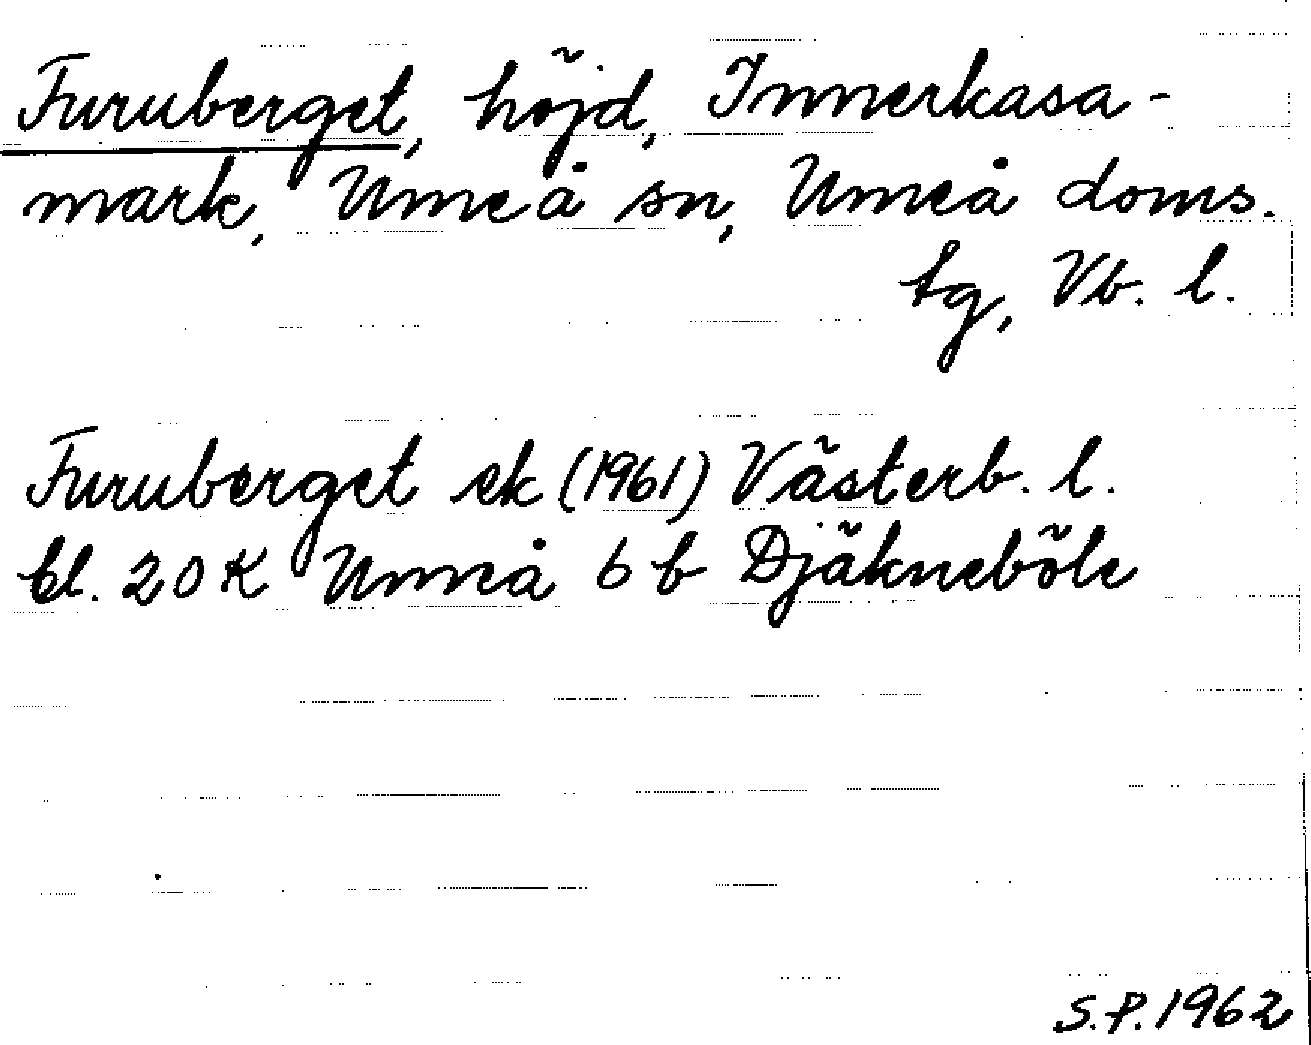 Furuberget, höjd, Innerkasa-
mark, Umeå sn, Umeå doms.
tg, Vb. l.
Furuberget ek (1961) Västerb. l.
bl. 20 K Umeå 6 b Djäkneböle
S.P. 1962